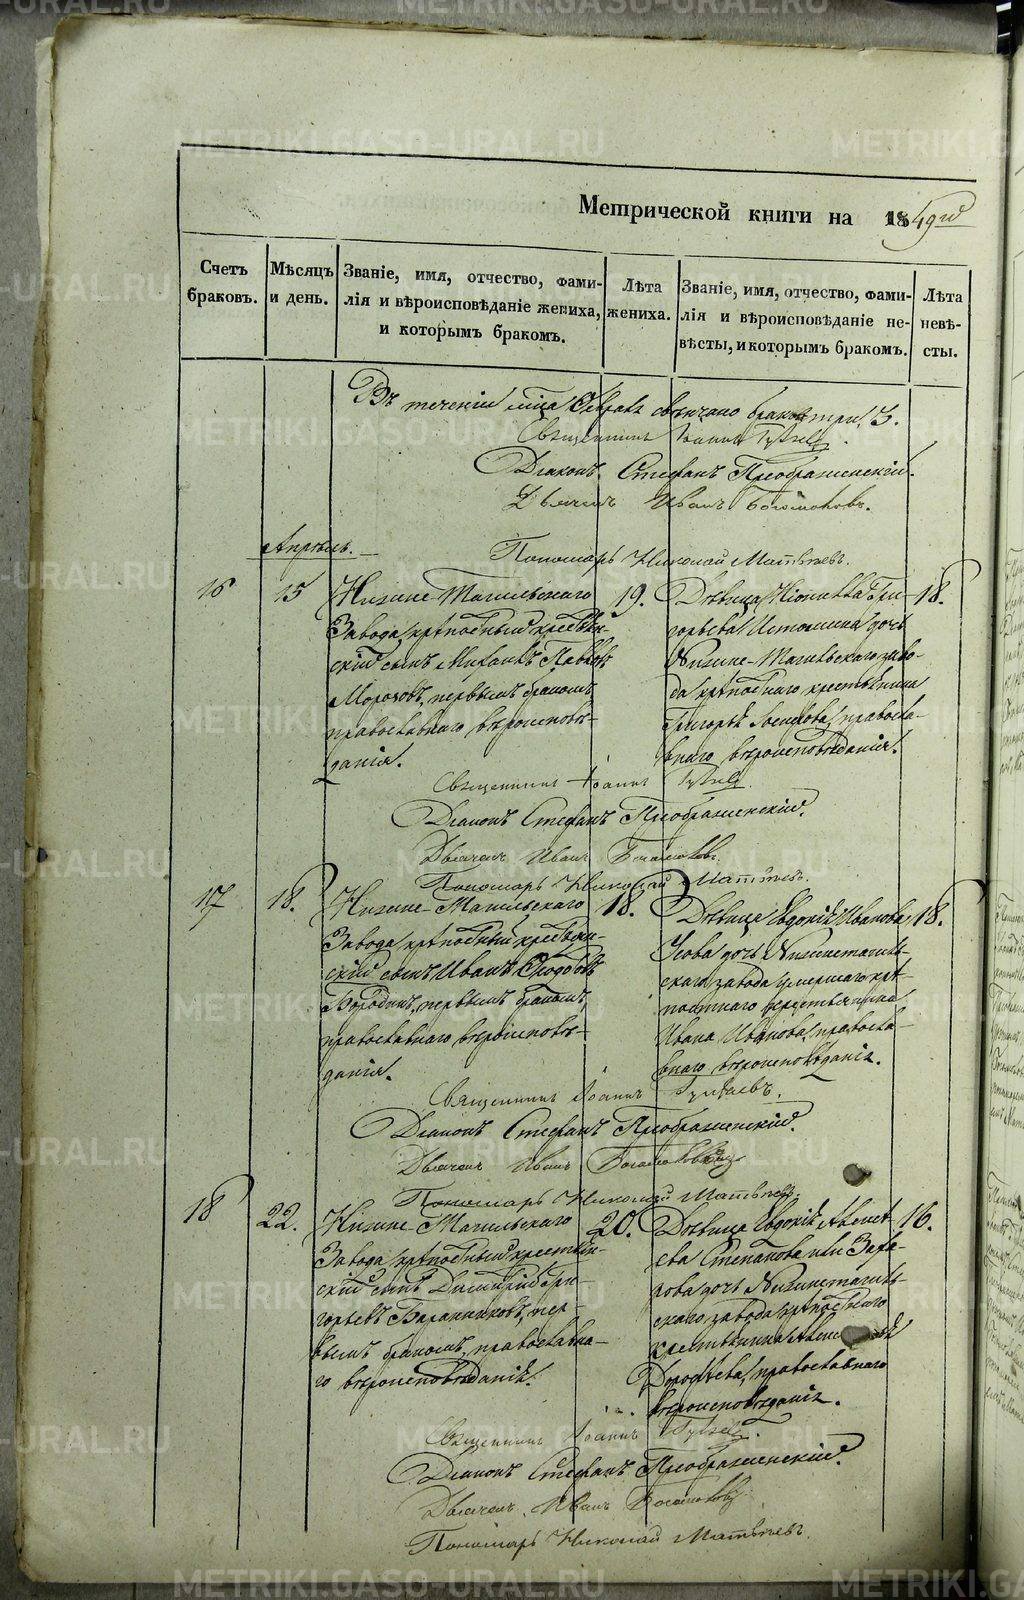 METRIKI.GASO-URAL.RU
Метрической книги на 1849й
Счетъ браковъ.
Мѣсяцъ и день.
Званіе, имя, отчество, фами-
лія и вѣроисповѣданіе жениха,
и которымъ бракомъ.
Лѣта жениха.
Званіе, имя, отчество, фами-
лія и вѣроисповѣданіе не-
вѣсты, и которымъ бракомъ.
Лѣта невѣ-
сты.
Въ теченіи мѣца свѣнчано браковъ три, 3.
Священникъ Іоаннъ
Діаконъ Стефанъ Преображенскій.
Дьячекъ Иванъ Богомоловъ.
Пономарь Николай Матвѣевъ.
Апрѣль.
16
15
Нижне-Тагильскаго
завода крѣпостный крестьян-
скій сынъ Михаилъ Павловъ
Морозовъ, первымъ бракомъ,
православнаго вѣроисповѣ-
данія.
19.
Дѣвица Гри-
горьева Истомина дочь
Нижне-Тагильскаго заво-
да крѣпостнаго крестьянина
Григорья православ-
наго вѣроисповѣданія.
18.
Священникъ Іоаннъ
Діаконъ Стефанъ Преображенскій.
Дьячекъ Иванъ Богомоловъ.
Пономарь Николай Матвѣевъ.
17
18.
Нижне-Тагильскаго
завода крѣпостный крестьян-
скій сынъ Иванъ Ѳедотовъ
Бородинъ, первымъ бракомъ,
православнаго вѣроисповѣ-
данія.
18.
Дѣвица Евдокія Иванова
Усова дочь Нижнетагиль-
скаго завода умершаго крѣ-
постнаго крестьянина
Ивана Иванова, православ-
наго вѣроисповѣданія.
18.
Священникъ Іоаннъ
Діаконъ Стефанъ Преображенскій.
Дьячекъ Иванъ Богомоловъ
Пономарь Николай Матвѣевъ.
18
22.
Нижне-Тагильскаго
завода крѣпостный крестьян-
скій сынъ Димитрій Гри-
горьевъ Баранниковъ, пер-
вымъ бракомъ, православна-
го вѣроисповѣданія.
20.
Дѣвица Евдокія
Степанова или
дочь Нижнетагиль-
скаго завода крѣпостнаго
крестьянина
Дороѳеева, православнаго
вѣроисповѣданія.
16.
Священникъ Іоаннъ
Діаконъ Стефанъ Преображенскій.
Дьячекъ Иванъ Богомоловъ
Пономарь Николай Матвѣевъ.